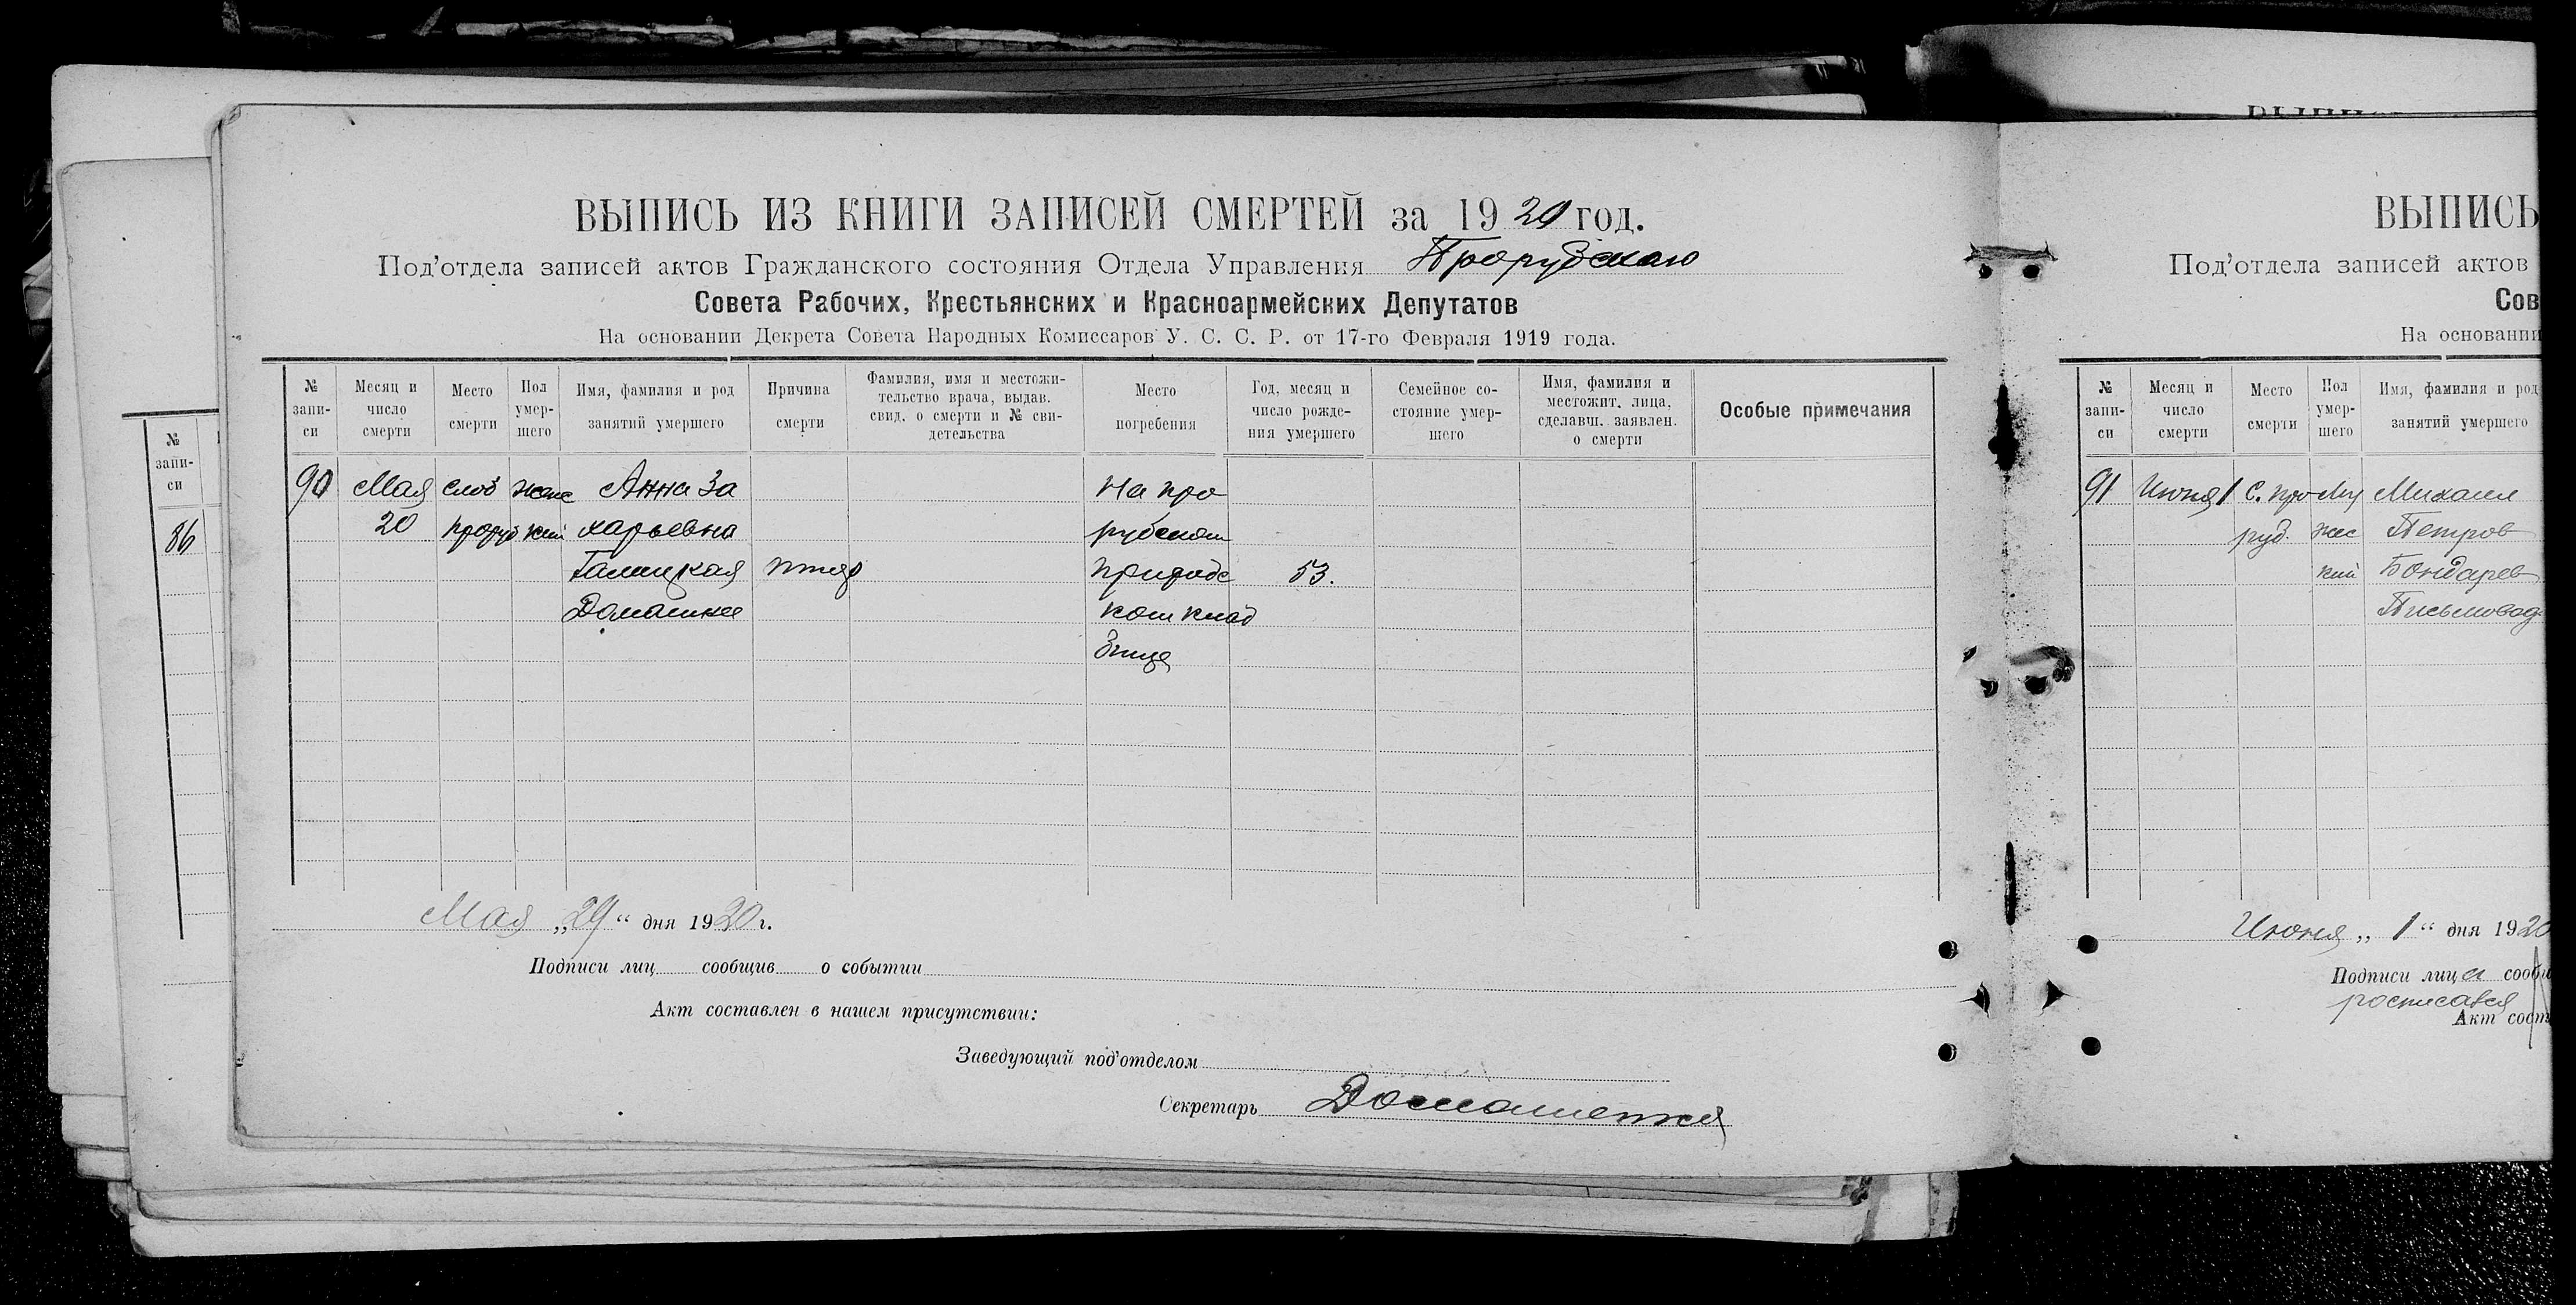 ВЫПИСЬ ИЗ КНИГИ ЗАПИСЕЙ СМЕРТЕЙ за 1920 год.
Под'отдела записей актов Гражданского состояния Отдела Управления Прорубскаго
Совета Рабочих, Крестьянских и Красноармейских Депутатов
На основании Декрета Совета Народных Комиссаров У. С. С. Р. от 17-го Февраля 1919 года.
№ запи-си
Месяц и число смерти
Место смерти
Пол умер-шего
Имя, фамилия и род занятий умершего
Причина смерти
Фамилия, имя и местожи-тельство врача, выдав. свид. о смерти и № сви-детельства
Место погребения
Год, месяц и число рожде-ния умершего
Семейное со-стояние умер-шего
Имя, фамилия и местожит. лица, сделавш. заявлен. о смерти
Особые примечания
90 Мая слоб женс Анна За На про
20 пруруб кий харьевна рубском
Галицкая 53.
Домашнее ком клад
бище
Мая „29“ дня 1920 г.
Подписи лиц сообщив о событии
Акт составлен в нашем присутствии:
Заведующий под'отделом
Секретарь
№ запи-си
86
ВЫПИСЬ
Под'отдела записей актов
Сов
На основании
№ запи-си
Месяц и число смерти
Место смерти
Пол умер-шего
Имя, фамилия и род занятий умершего
91 Июня 1 с. про Му Михаил
руб. жес Петров
кий Бондарев
Письмовод.
Июня „1“ дня 1920
Подписи лица сооб
росписался
Акт сост